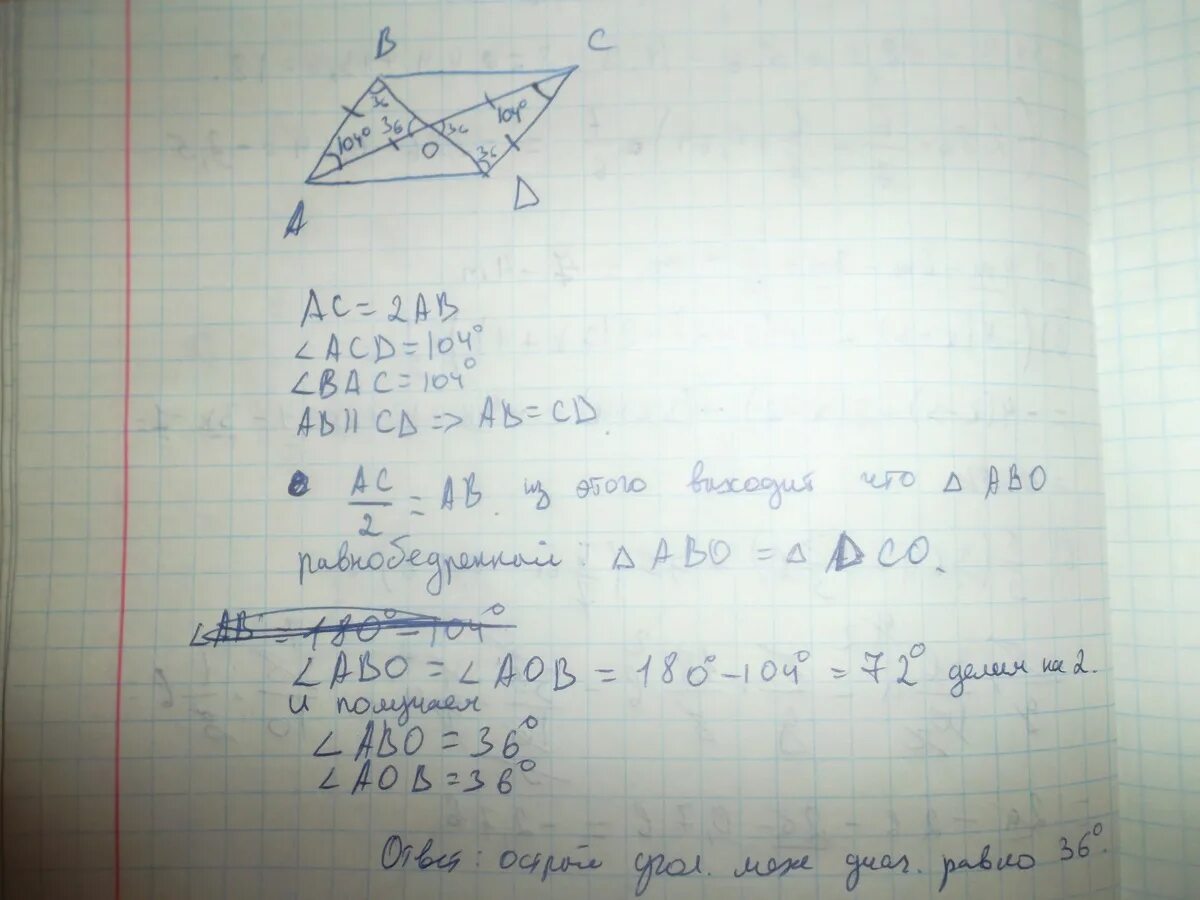 B C
36 104°
104° 36 36
O 36
A D
AC = 2AB
∠ACD = 104°
∠BAC = 104°
AB || CD => AB = CD.
AC/2 = AB. из этого виходит что △ ABO
равнобедренный : △ ABO = △ DCO.
∠AB = 180° - 104°
∠ABO = ∠AOB = 180° - 104° = 72° делим на 2.
и получаем
∠ABO = 36°
∠AOB = 36°
Ответ : острый угол. меж диаг. равно 36°.